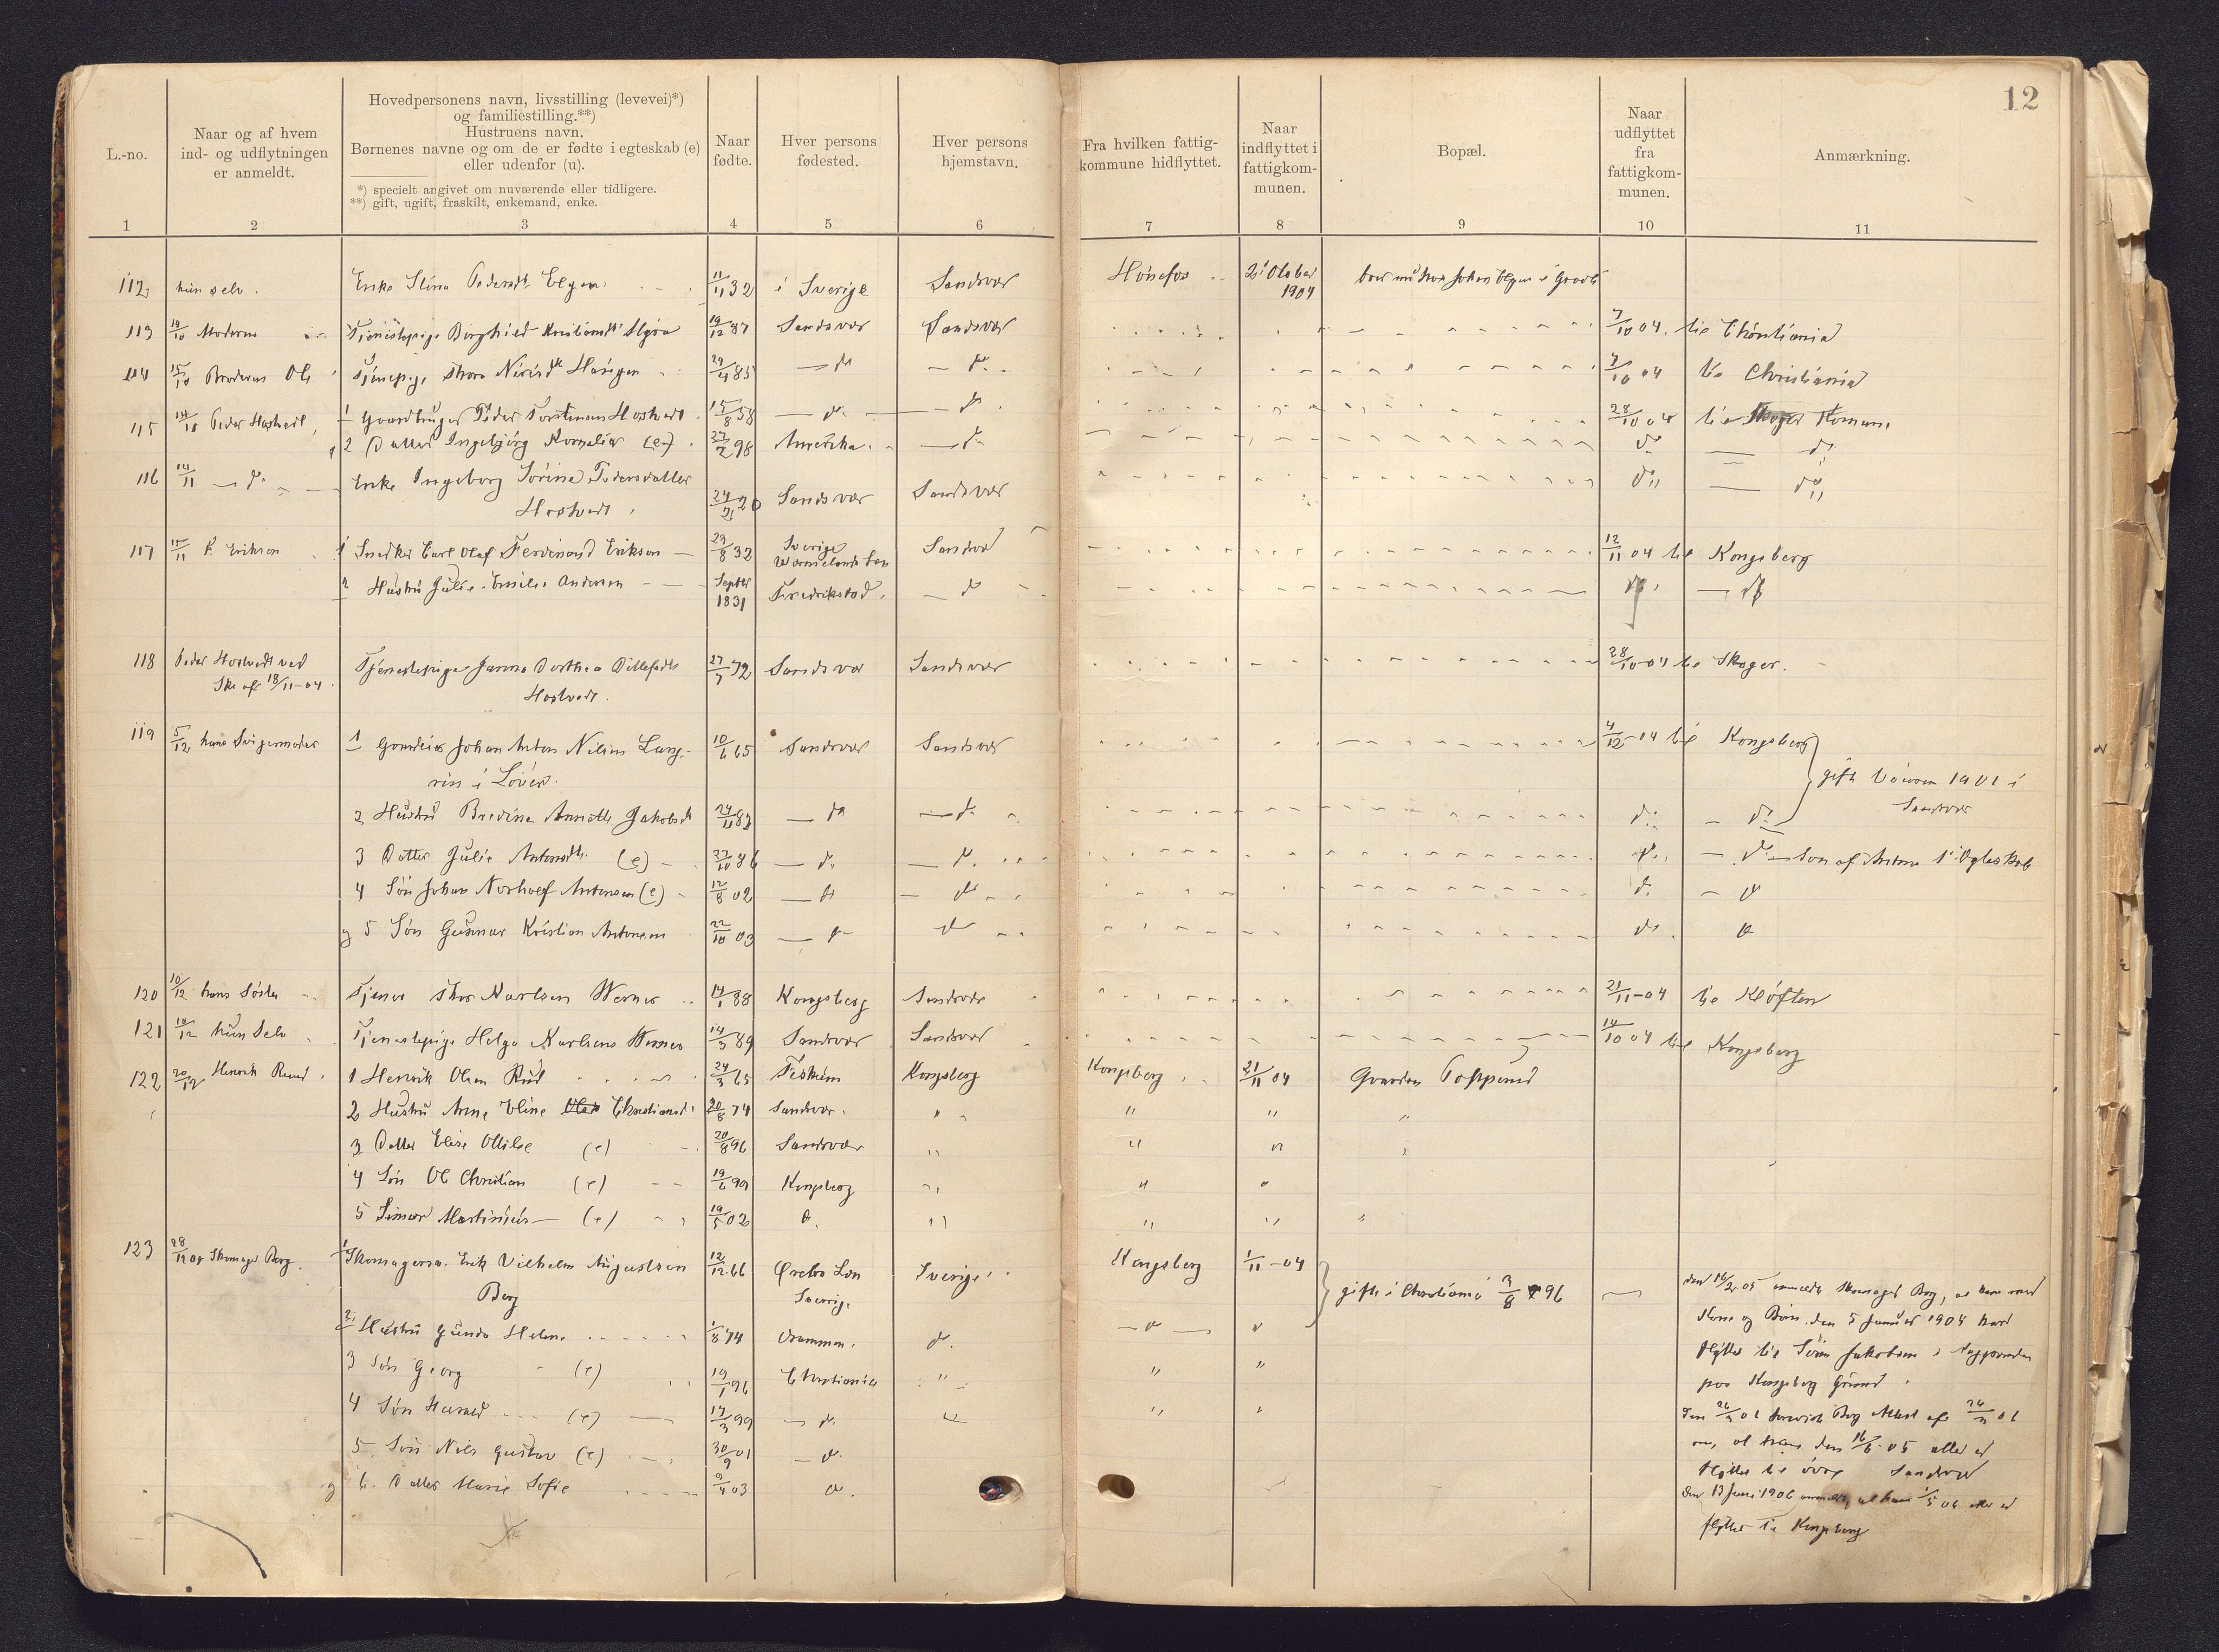 12
L.-no.
Naar og af hvem
ind- og udflytningen
er anmeldt.
Hovedpersonens navn, livsstilling (levevei)*)
og familiestilling.**)
Hustruens navn.
Børnenes navne og om de er fødte i egteskab (e)
eller udenfor (u).
*) specielt angivet om nuværende eller tidligere.
**) gift, ugift, fraskilt, enkemand, enke.
Naar
fødte.
Hver persons
fødested.
Hver persons
hjemstavn.
Fra hvilken fattig-
kommune hidflyttet.
Naar
indflyttet i
fattigkom-
munen.
Bopæl.
Naar
udflyttet
fra
fattigkom-
munen.
Anmærkning.
1 2 3 4 5 6 7 8 9 10 11
112 hun selv. Enke Stina Pedersdt. Elgen 11/11 32 i Sverige Sandsvær Hønefos 2' Otober
1904
113 14/10 Moderen Tjenestepige Borghild 19/12 87 Sandsvær Sandsvær 7/10 04. til Christiania
114 15/10 Broderen Ole Thora 29/4 85 do do 7/10 04 til Christiania
115 14/10 Peder Hostvedt 1 Gaardbruger Peder Torstensen Hostvedt 15/8 58 do do 28/10 04 til Skoger Komune
2 Datter Ingebjørg Kornelia (e) 27/2 98 Amerika do do do
116 14/11 do Enke Ingeborg Sørine Pedersdatter
Hostvedt 20 Sandsvær Sandsvær do do
117 15/11 Erikson 1 Snedker Carl Olaf Ferdinand Erikson 29/8 32 Sverige
Sandsvær 12/11 04 til Kongsberg
2 Hustru Julie Emilie Andersen Septbr
1831 Fredrikstad do do do
118 Peder Hostvedt ved
Skr. af 18/11-04 Tjenestepige Janna Dorthea
Hostvedt. 27/7 72 Sandsvær Sandsvær 28/10-04 til Skoger.
119 5/12 hans Svigermoder 1 Johan Anton Nilsen
10/6 65 Sandsvær Sandsvær 4/12-04 til Kongsberg
gift 1901 i
Sandsvær
2 Hustru Bredine Annette Jakobsdt 24/11 82 do do do do
3 Datter Julie Antonsdt. (e) do do do do
4 Søn Johan Antonsen (e) 12/8 02 do do do do
og 5 Søn Gunnar Kristian Antonsen 22/10 03 do do do do
120 10/12 hans Søster Tjener Thor Karlsen Werner 14/1 88 Kongsberg Sandsvær 21/11-04 til Kløften
121 10/12 hun Selv Tjenestepige Helga Karlsens Werner 14/3 89 Sandsvær Sandsvær 14/10 04 til Kongsberg
122 20/12 Henrik Ruud 1 Henrik Olsen Rud 24/3 65 Kongsberg Kongsberg 21/11 04 Gaarden
2 Hustru Anne Eline Christiansd. 20/8 74 Sandsvær " " "
3 Datter Elise Ottilie (e) 20/8 96 Sandsvær " " "
4 Søn Ole Christian (e) 19/6 99 Kongsberg " " "
5 Martinius (e) 19/5 02 do " " "
123 28/12 04 Skomager Berg. 1 Skomagersv. Erik Vilhelm Augustsen
Berg 12/12 66 Ørebro Len
Sverrig Sverige Kongsberg 1/11-04 gifte i Christiania 3/8 96
2 Hustru Gunda Helene 1/8 74 Drammen. do. do
3 Søn Georg (e) 19/1 96 Christiania " " "
4 Søn Harald (e) 17/3 99 do "
5 Søn Nils Gustav (e) 30/9 01 do
og 6. Datter Marie Sofie 9/4 03 do.
den 16/2 05 anmeldte Skomager Berg, at han med
Kone og Børn den 5 Januar 1905 har
flyttet til Jakobsen i
paa Kongsberg Grund.
om, at han den 16/6 05 atter er
flyttet til øvre Sandsvær
den 13 Juni 1906 anmeldt, at han 1/5 06 atter er
flyttet til Kongsberg